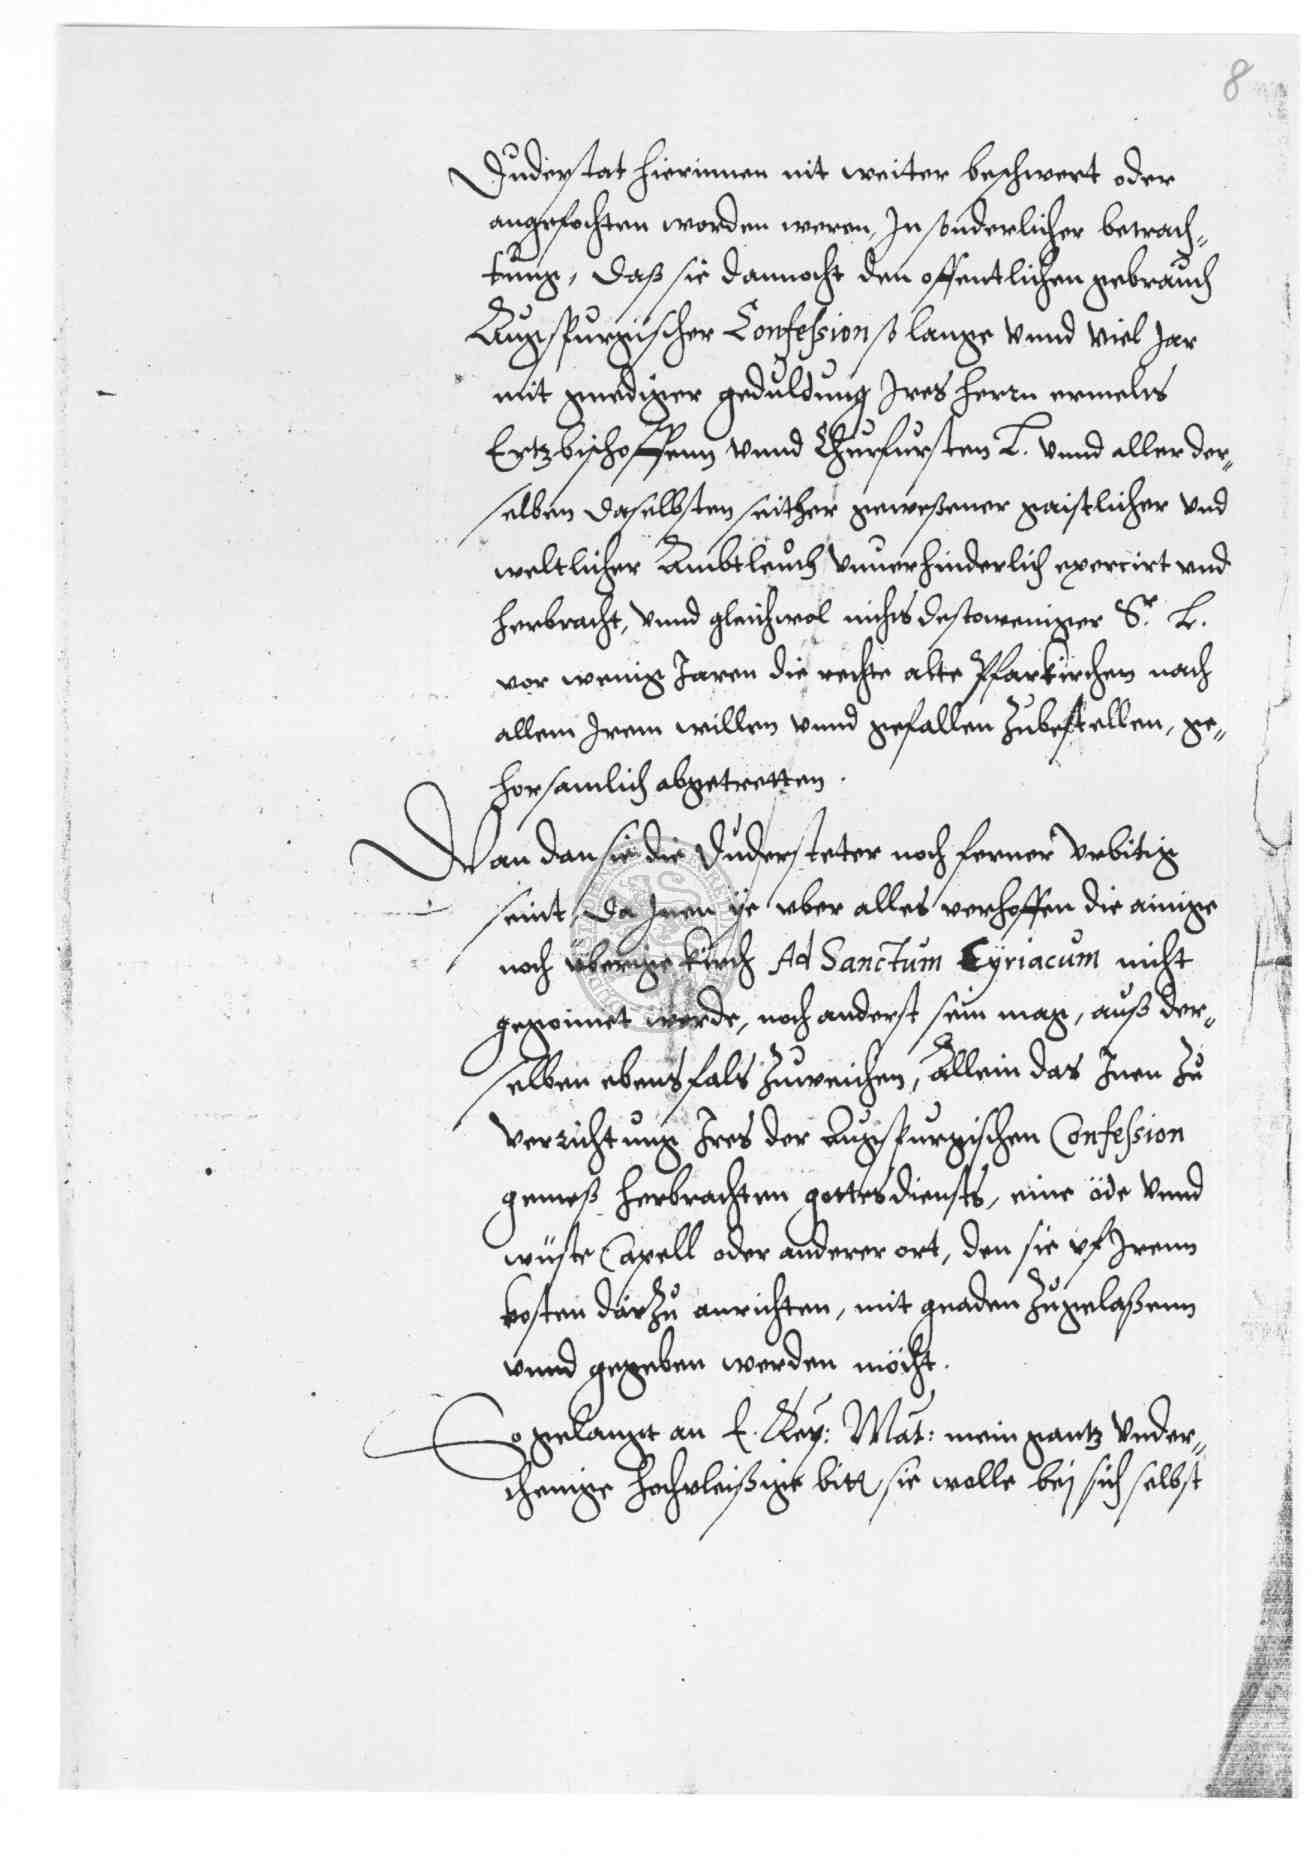 8
Duderstat hierinnen nit weiter beschwert oder
angefochten worden weren, In sonderlicher betrach„
tung, daß sie dannocht den offentlichen gebrauch
Augspurgischer Confession so lange vnnd viel Jar
mit gnediger geduldung Ires herrn ermelts
Ertzbischoffenn vnnd Churfursten L. vnnd aller der„
selben daselbsten seither geweßener gaistlicher vnd
weltlicher Ambtleuth vnuerhinderlich exercirt vnd
herbracht, vnnd gleichwol nichts destoweniger Sr. L.
vor wenig Jaren die rechte alte Pfarkirchen nach
allem Irem willen vnnd gefallen Zubestellen, ge„
horsamlich abgetretten.
Wan dan sie die Dudersteter noch ferner vrbitig
seint, da Inen ÿe vber alles verhoffen die ainige
noch überige kirch Ad Sanctum Cÿriacum nicht
gegoinnet werde, noch anderst sein mag, auß der„
selben ebens fals Zuweichen, Allein das Inen Zu
verrichtung Ires der Augspurgischen Confession
gemeß herbrachten gottesdiensts, eine öde vnnd
wüste Capell oder anderer ort, den sie vf Irenn
kosten darZu anrichten, mit gnaden Zugelaßenn
vnnd gegeben werden möcht.
So gelangt an E. Key: Mat: mein gantz vnder„
thenige hochvleißige bitt, sie wolle bej sich selbst